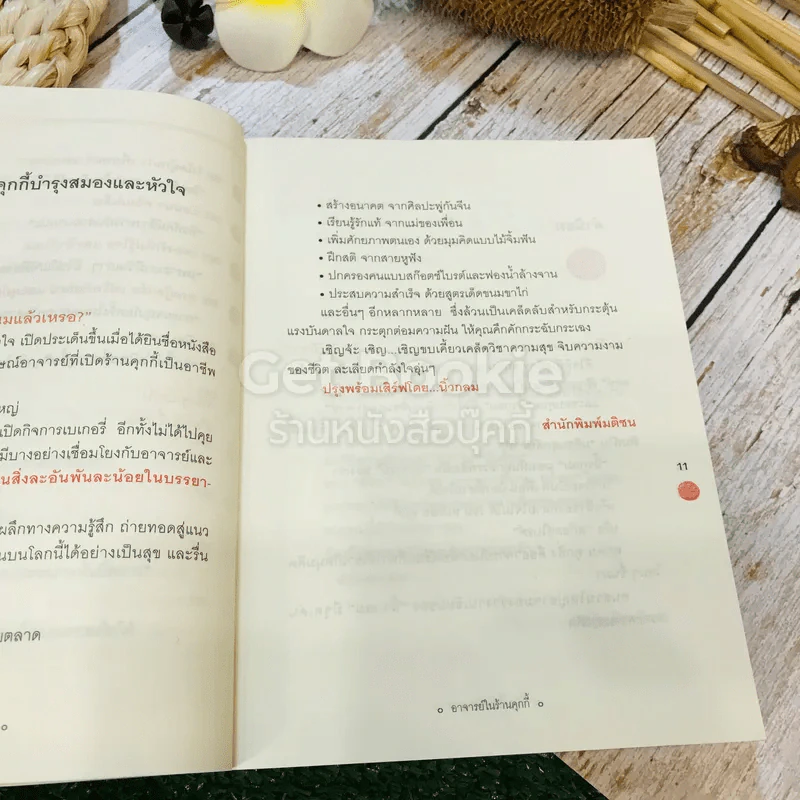 คุกกี้บำรุงสมองและหัวใจ
มแล้วเหรอ?"
ใจ เปิดประเด็นขึ้นเมื่อได้ยินชื่อหนังสือ
ษณ์อาจารย์ที่เปิดร้านคุกกี้เป็นอาชีพ
หญ่
เปิดกิจการเบเกอรี่ อีกทั้งไม่ได้ไปคุย
มีบางอย่างเชื่อมโยงกับอาจารย์และ
นสิ่งละอันพันละน้อยในบรรยา-
ผลึกทางความรู้สึก ถ่ายทอดสู่แนว
นบนโลกนี้ได้อย่างเป็นสุข และรื่น
ยตลาด
• สร้างอนาคต จากศิลปะพู่กันจีน
• เรียนรู้รักแท้ จากแม่ของเพื่อน
• เพิ่มศักยภาพตนเอง ด้วยมุมคิดแบบไม้จิ้มฟัน
• ฝึกสติ จากสายหูฟัง
• ปกครองคนแบบสก๊อตช์ไบรต์และฟองน้ำล้างจาน
• ประสบความสำเร็จ ด้วยสูตรเด็ดขนมขาไก่
และอื่นๆ อีกหลากหลาย ซึ่งล้วนเป็นเคล็ดลับสำหรับกระตุ้น
แรงบันดาลใจ กระตุกต่อมความฝัน ให้คุณคึกคักกระฉับกระเฉง
เชิญจ้ะ เชิญ...เชิญขบเคี้ยวเคล็ดวิชาความสุข จิบความงาม
ของชีวิต ละเลียดกำลังใจอุ่นๆ
ปรุงพร้อมเสิร์ฟโดย...นิ้วกลม
สำนักพิมพ์มติชน
11
อาจารย์ในร้านคุกกี้
Get Bookie
ร้านหนังสือบุ๊คกี้